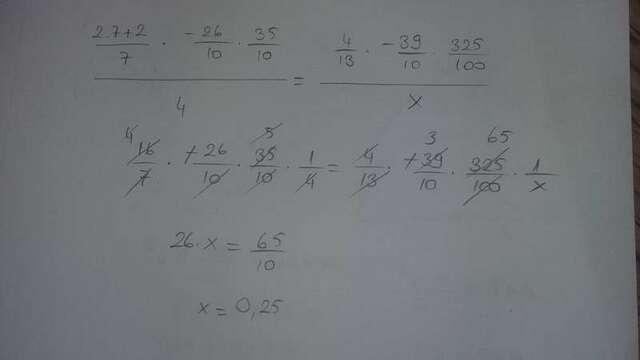 (2·7+2)/7 · -26/10 · 35/10 / 4 = 4/13 · -39/10 · 325/100 / x
4 5 3 65
16/7 · +26/10 · 35/10 · 1/4 = 4/13 · +39/10 · 325/100 · 1/x
26·x = 65/10
x = 0,25